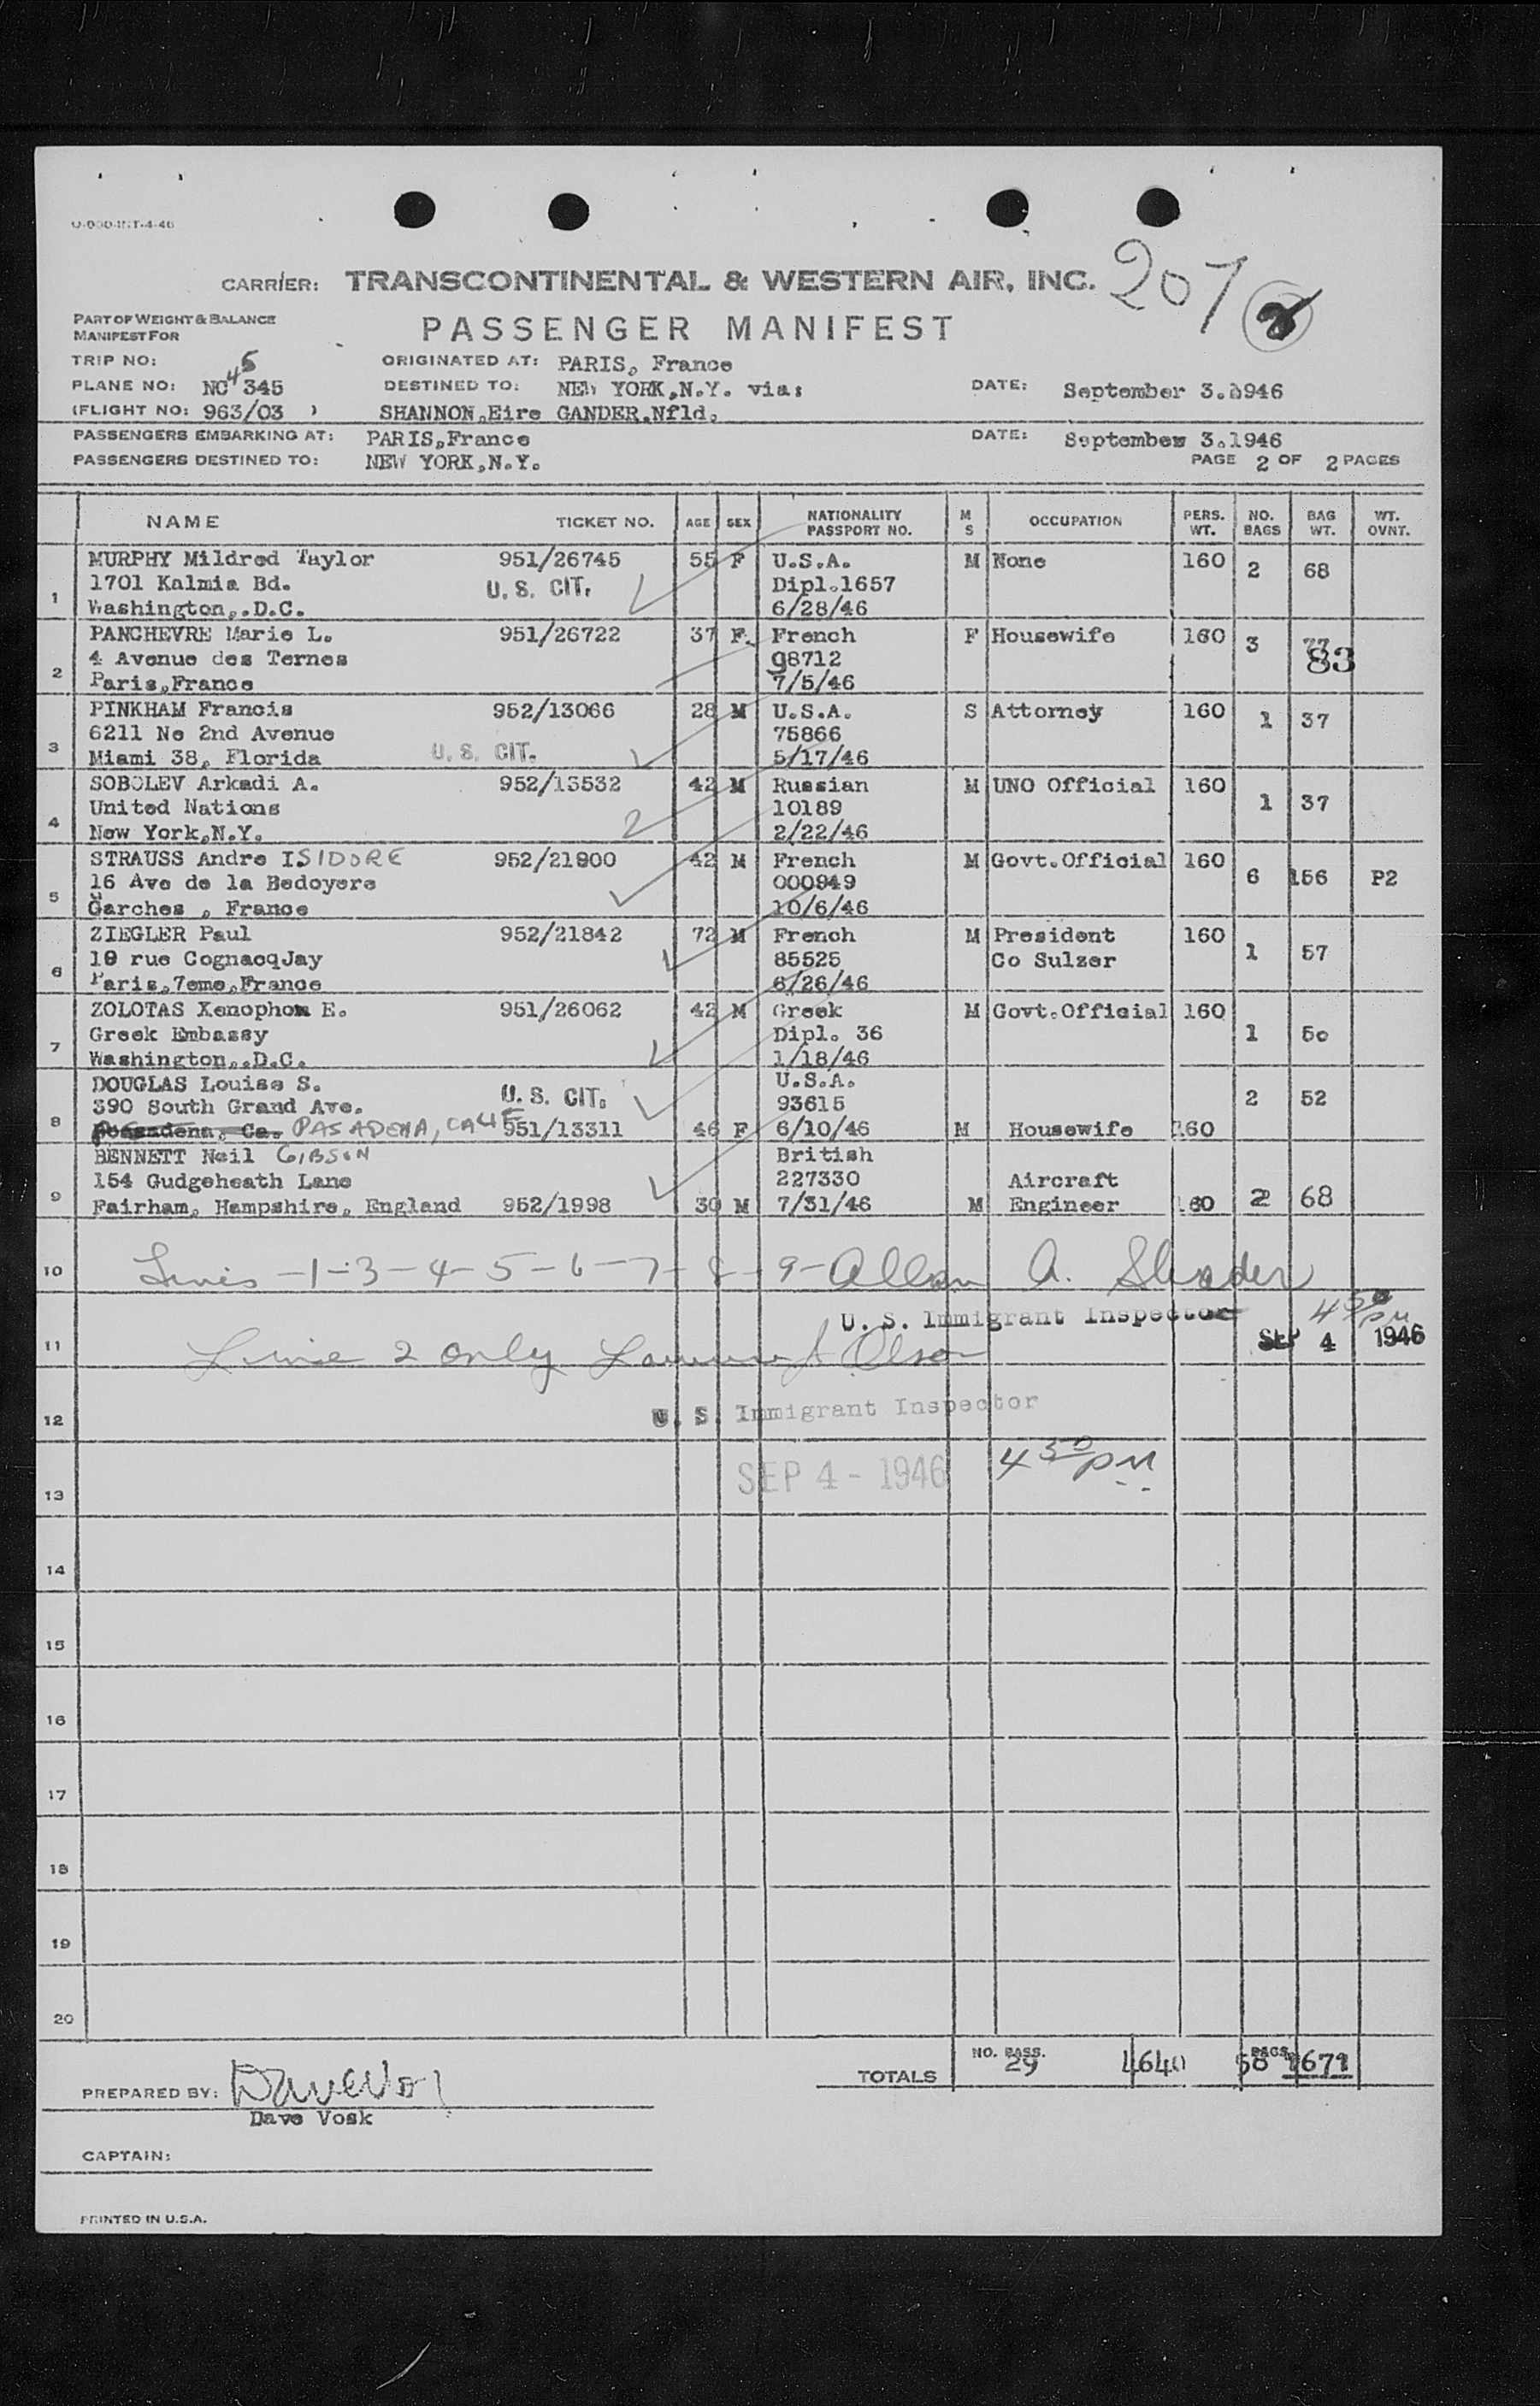 O-600-INT-4-46
CARRIER: TRANSCONTINENTAL & WESTERN AIR, INC. 207
PART OF WEIGHT & BALANCE
MANIFEST FOR
PASSENGER MANIFEST
TRIP NO: ORIGINATED AT: PARIS, France
PLANE NO: NC 45 345 DESTINED TO: NEW YORK,N.Y. via: DATE: September 3.1946
(FLIGHT NO: 963/03 ) SHANNON,Eire GANDER,Nfld.
PASSENGERS EMBARKING AT: PARIS,France DATE: September 3.1946
PASSENGERS DESTINED TO: NEW YORK,N.Y. PAGE 2 OF 2 PAGES
NAME TICKET NO. AGE SEX NATIONALITY PASSPORT NO. M S OCCUPATION PERS. WT. NO. BAGS BAG WT. WT. OVNT.
MURPHY Mildred Taylor 951/26745 55 F U.S.A. M None 160 2 68
1701 Kalmia Bd. U. S. CIT. Dipl.1657
1 Washington,.D.C. 6/28/46
PANCHEVRE Marie L. 951/26722 37 F. French F Housewife 160 3 77 83
4 Avenue des Ternes 98712
2 Paris,France 7/5/46
PINKHAM Francis 952/13066 28 M U.S.A. S Attorney 160 1 37
6211 Ne 2nd Avenue 75866
3 Miami 38, Florida U. S. CIT. 5/17/46
SOBOLEV Arkadi A. 952/13532 42 M Russian M UNO Official 160 1 37
United Nations 10189
4 New York,N.Y. 2/22/46
STRAUSS Andre ISIDORE 952/21800 42 M French M Govt.Official 160 6 156 P2
16 Ave de la Bedoyere 000949
5 Garches , France 10/6/46
ZIEGLER Paul 952/21842 72 M French M President 160 1 57
19 rue CognacqJay 85525 Co Sulzer
6 Paris,7eme,France 6/26/46
ZOLOTAS Xenophon E. 951/26062 42 M Greek M Govt.Official 160 1 50
Greek Embassy Dipl. 36
7 Washington,.D.C. 1/18/46
DOUGLAS Louise S. U.S.A.
390 South Grand Ave. U. S. CIT. 93615 2 52
8 Pasadena, Ca. PASADENA, CALIF 951/13311 46 F 6/10/46 M Housewife 160
BENNETT Neil GIBSON British
154 Gudgeheath Lane 227330 Aircraft
9 Fairham, Hampshire, England 952/1998 30 M 7/31/46 M Engineer 160 2 68
10 Lines -1-3-4-5-6-7-8-9- Allan A.
U. S. Immigrant Inspector 4 30 PM
11 Line 2 only Olson SEP 4 1946
12 U. S. Immigrant Inspector
SEP 4 - 1946 4 30 PM
13
14
15
16
17
18
19
20
TOTALS NO. PASS. 29 4640 BAGS 58 1671
PREPARED BY:
Dave Vosk
CAPTAIN:
PRINTED IN U.S.A.